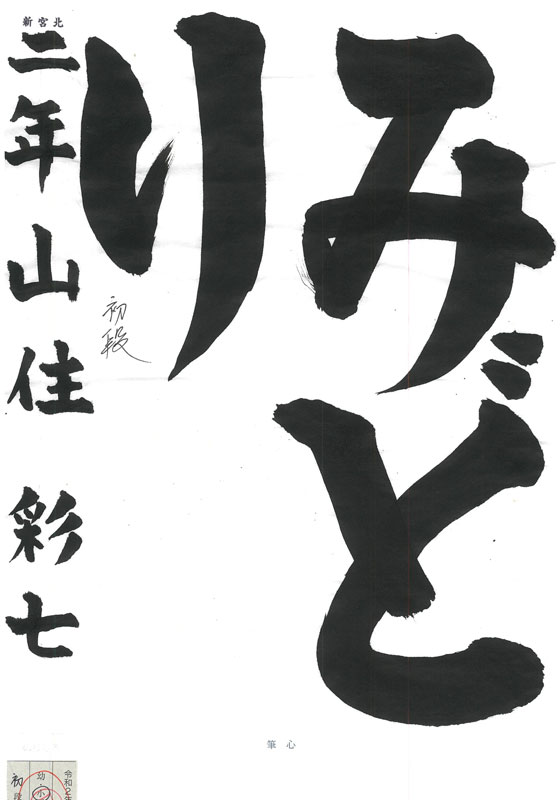 みど
り
初段
北宮新
二年山住彩七
心筆
令和2年
幼・小
初段